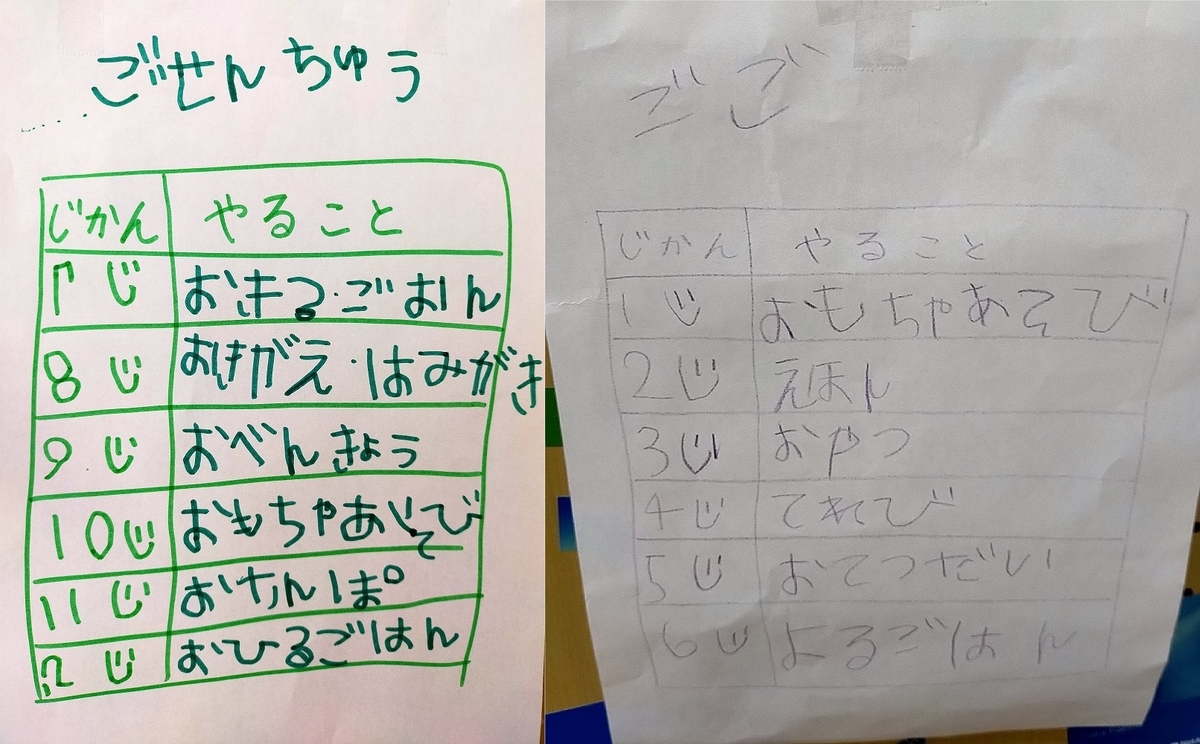 ごせんちゅう
じかん やること
7じ おきる・ごはん
8じ おきがえ・はみがき
9じ おべんきょう
10じ おもちゃあそび
11じ おさんぽ
12じ おひるごはん
ごご
じかん やること
1じ おもちゃあそび
2じ えほん
3じ おやつ
4じ てれび
5じ おてつだい
6じ よるごはん